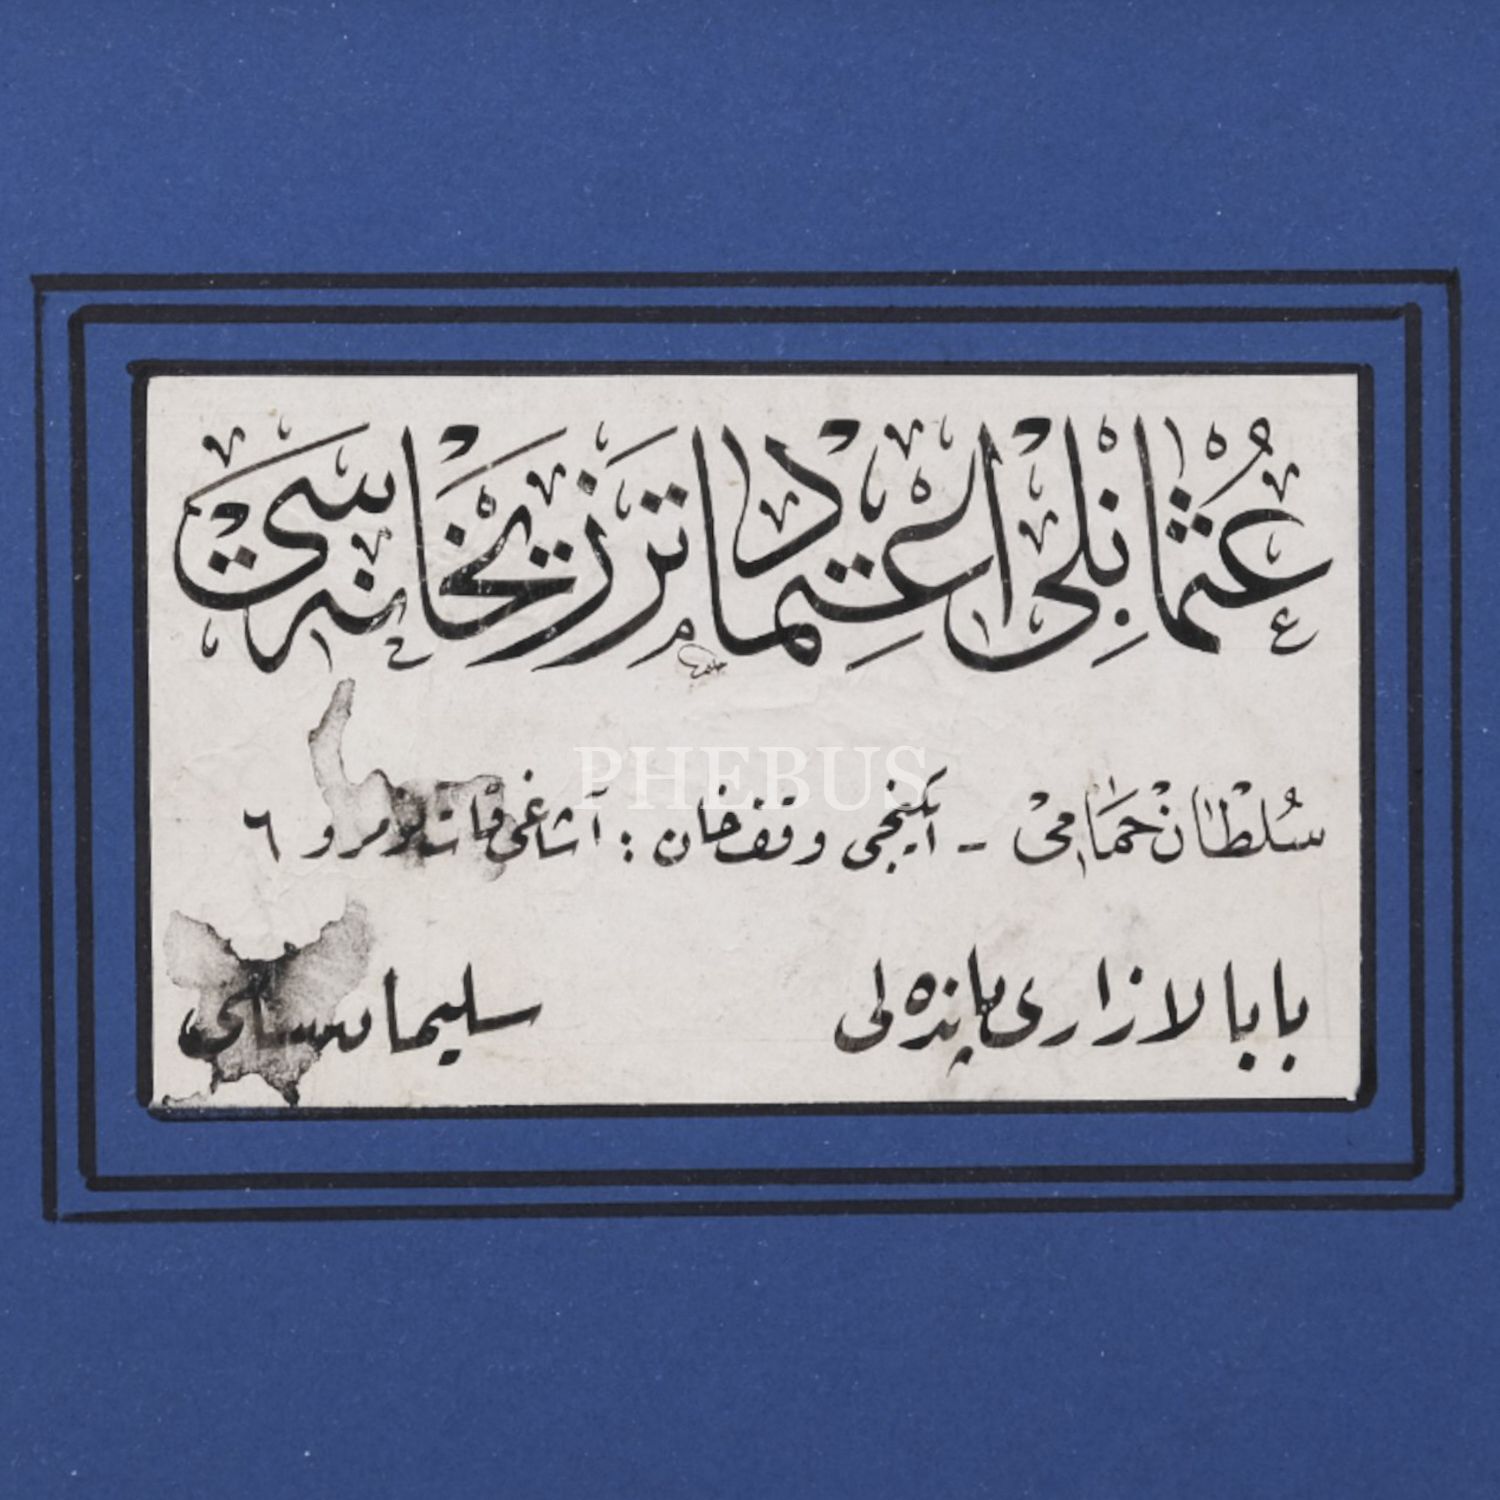 عُثمانلى اعتماد ترزيخانه سى
PHEBUS
سُلطان حمامى - آيكنجى وقف خان : آشاغى قات نومرو ٦
بابالازارى پاندهلى
سليمان